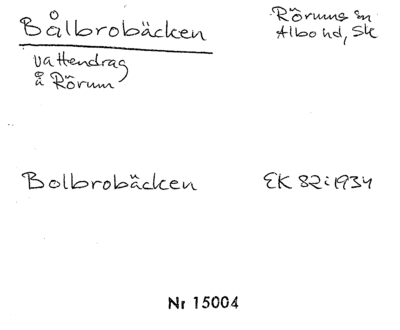 Bålbrobäcken
Rörums sn
Albo hd, Sk
vattendrag
å Rörum
Bolbrobäcken
EK 82:1934
Nr 15004